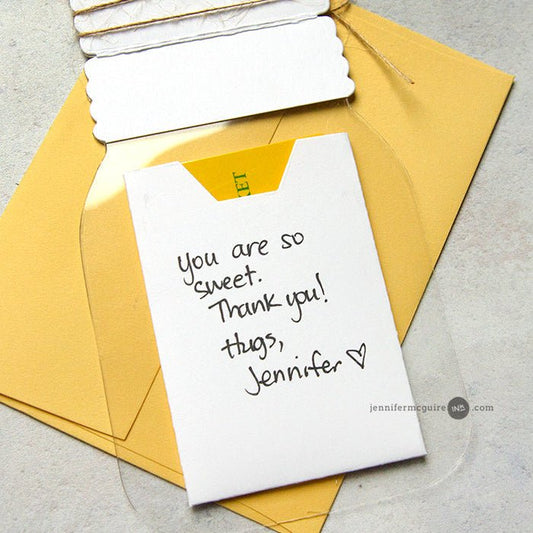 You are so
sweet.
Thank you!
Hugs,
Jennifer ♡
jennifermcguire INK .com